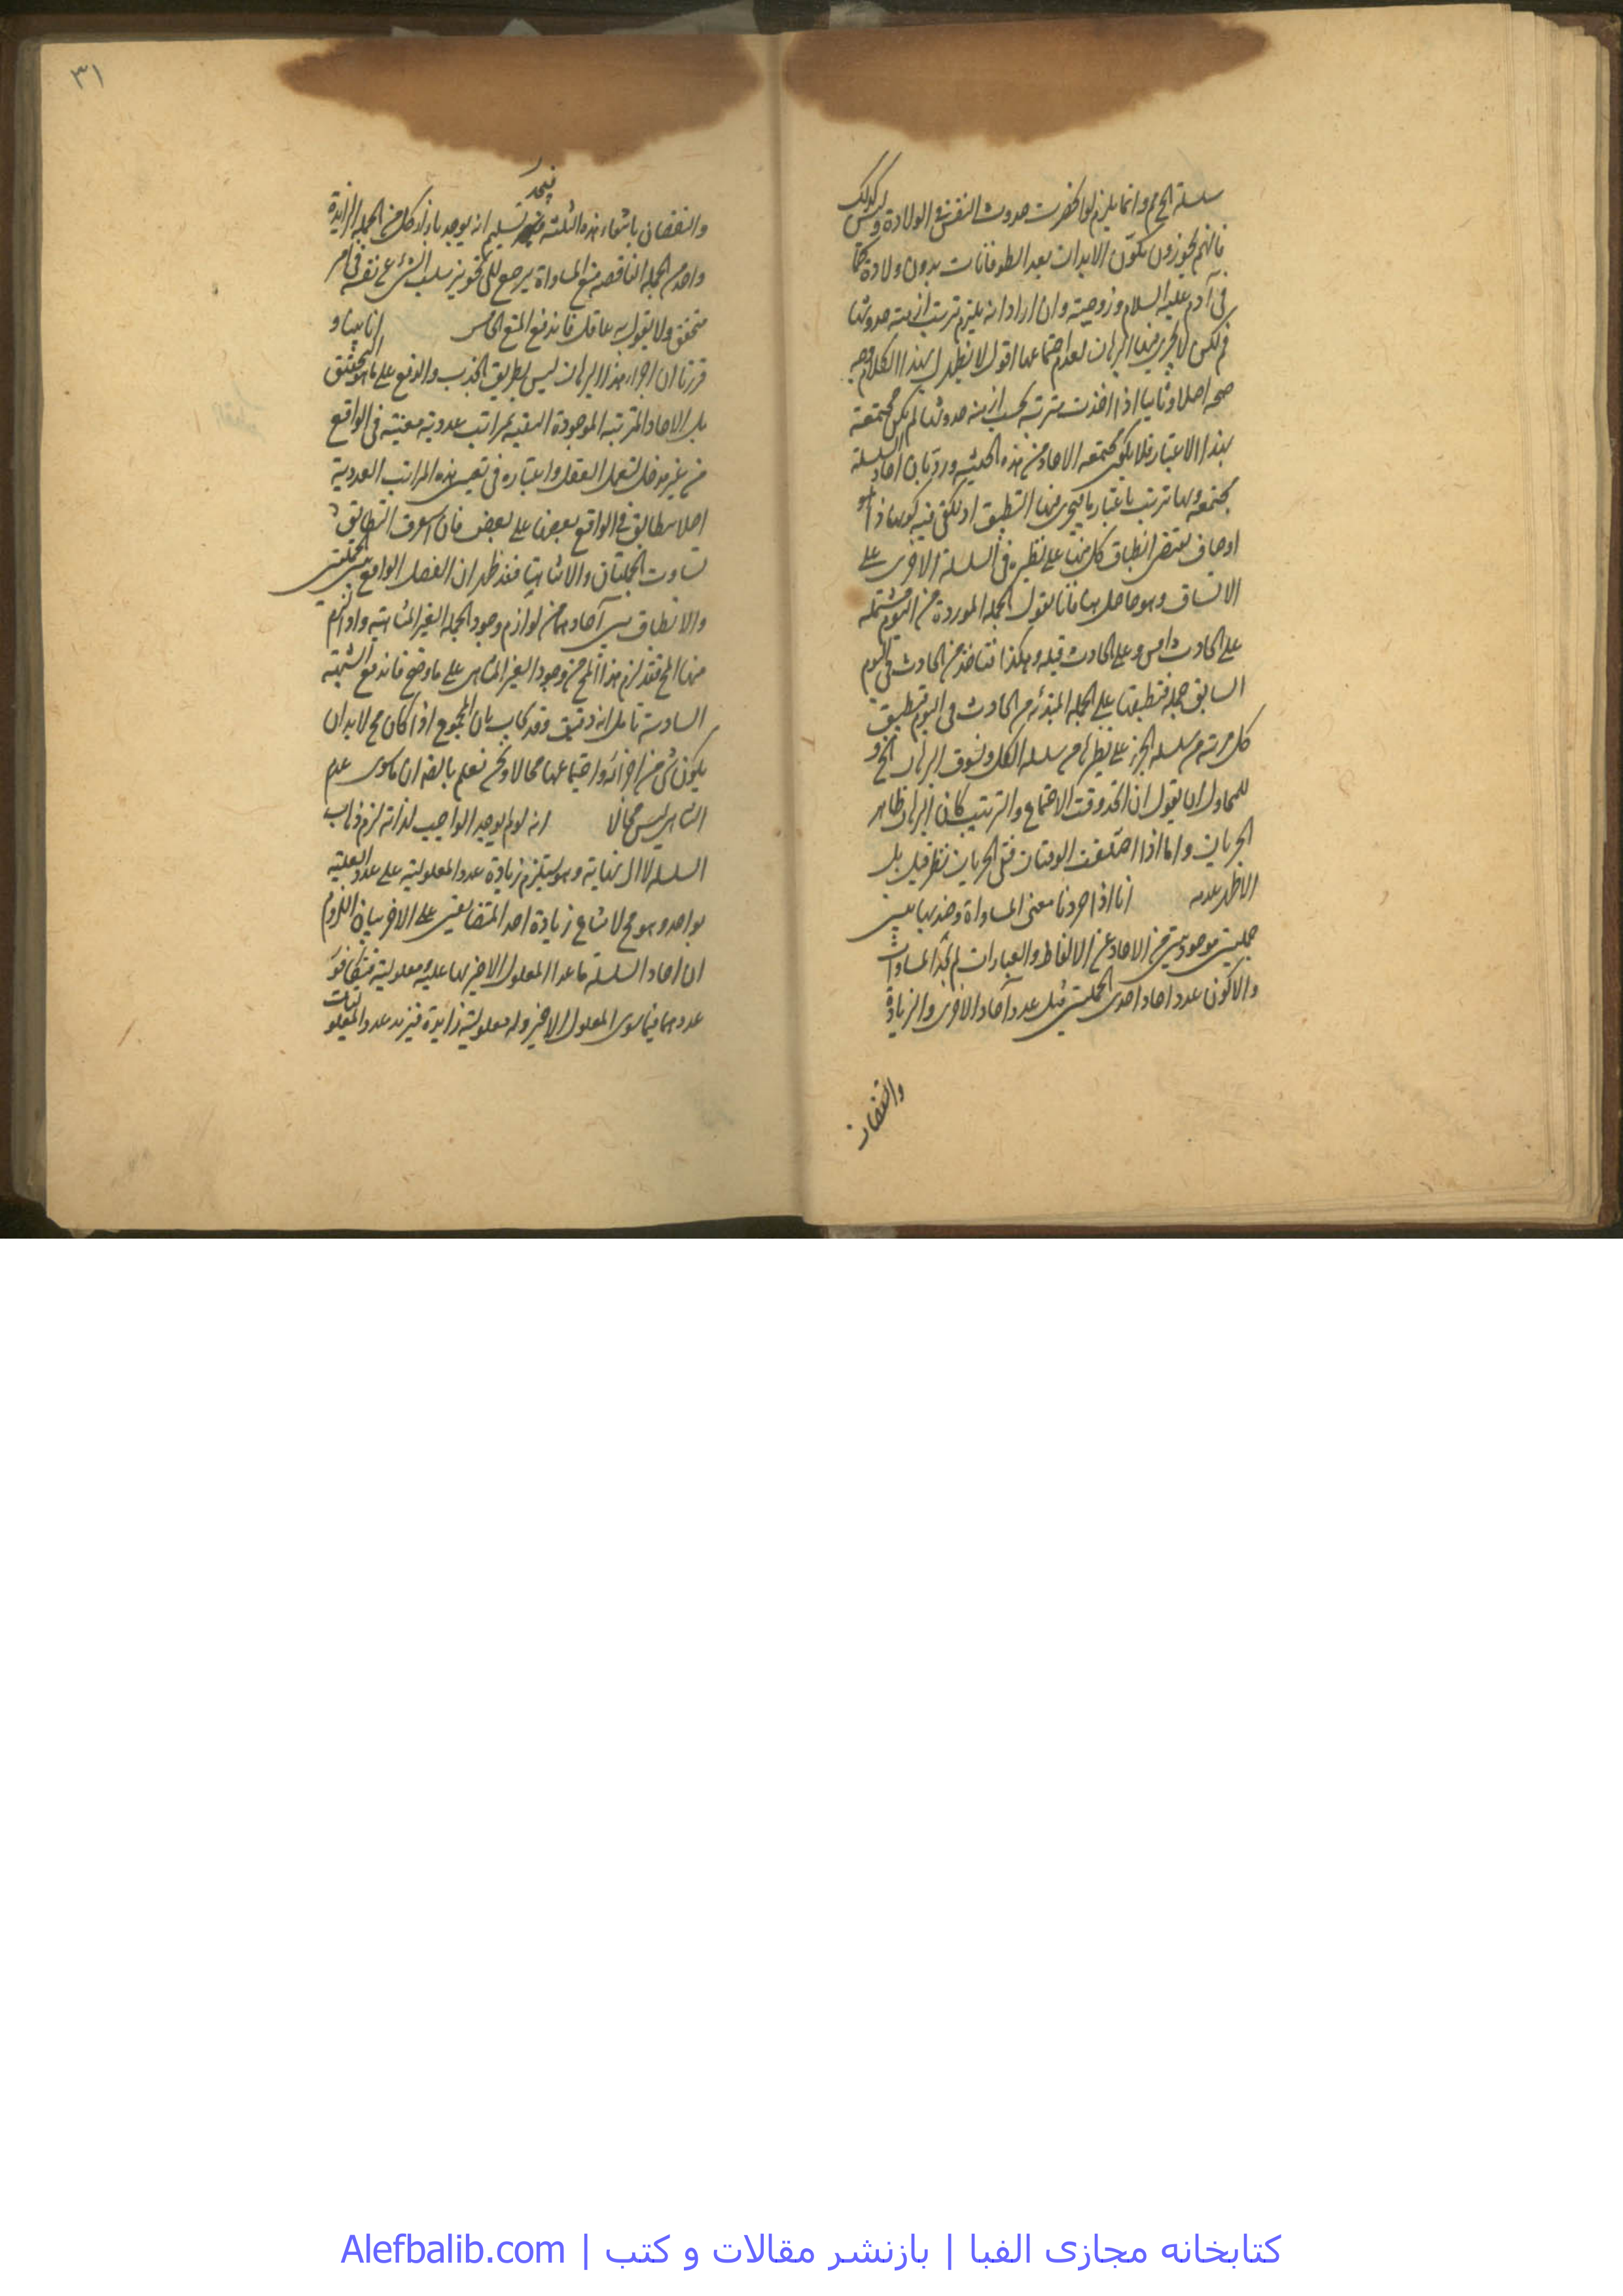 سلسلة الخ وانما يلزم لو انحضرت حدوث النفس فى الولادة وليس كذلك
فانهم يجوزون تكوّن الابدان بعد الطوفانات بدون ولادة كما
فى آدم عليه السلام وزوجيته وان اراد انه يلزم ترتب ازمنته حدوثها
فم لكن لا يجرى فيها البرهان لعدم اجتماعها اقول لا يظهر لهذا الكلام وجه
صحه اصلا وثانيا اذا اخذت مترتبه بحسب ازمنه حدوثها لم يكن مجتمعة
بهذا الاعتبار فلا يكون مجتمعه الاحاد من هذه الحيثيه ورد بان احاد السلسلة
مجتمعه ولها ترتب باعتبار ما فيجرى فيها التطبيق اذ يكفى فيه كونها ذا
اوصاف يقتضى انطباق كل منها على نظيره فى السلسلة الاخرى على
الاتساق وهو حاصل هنا فانا نقول الجمله الموردة من اليوم مشتمله
على الحادث دامس وعلى الحادث قبله وهكذا فتاخذ من الحادث فى اليوم
السابق جمله فتطبقها على الجمله المبتدئه من الحادث فى اليوم فتطبيق
كل مرتبه من سلسله الجزء على نظيرها من سلسله الكل ونسوق البرهان الخ و
للمحاول ان يقول ان اتحد وقت الاجتماع والترتيب كان البرهان ظاهر
الجريان واما اذا اختلفت الوقتان ففى الجريان نظر قيل بل
الاظهر عدمه انا اذا جردنا معنى المساواة وضدها بين
جملتين موجودتين من الاحاد عن الالفاظ والعبارات لم نجد المساوات
والا كون عدد احاد احدى الجملتين قبل عدد آحاد الاخرى والزيادة
والنقصان
٣١
والنقصان بانتفاء هذه الثلثه فبعد تسليم انه يوجد بازاء كل من الجمله الزايدة
واحد من الجمله الناقصه منع المساواة يرجع الى تجويز سلب الشئ عن نفسه فى امر
متحقق ولا يقول به عاقل فاندفع المنع الخامس انا بينا و
قررنا ان اجراء هذا البرهان ليس بطريق الجذب والدفع على ما هو التحقيق
بل الاحاد المترتبة الموجودة المقيه بمراتب عدديه معينه فى الواقع
من غير مدخل لتعمل العقل واعتباره فى تعيين هذه المراتب العددية
اصلا يتطابق فى الواقع بعضها على بعض فان استغرق التطابق
تساوت الجملتان والا تناهتا فقد ظهر ان الفصل الواقع بين الجملتين
والانطباق بين آحادهما من لوازم وجود الجمله الغير المتناهيه واذا لزم
منها المح فقد لزم هذا المح من وجود الغير المتناهى على ما وضح فاندفع الشبهة
السادسة تامل انه دقيق وقد يجاب بان المجموع اذا كان مح لا بد ان
يكون شئ من اجزائه واجتماعها محالا ونحن نعلم بالضه ان ما سوى عدم
التناهى ليس محالا انه لو لم يوجد الواجب لذاته لزم ذهاب
السلسله لا الى نهاية وهو يستلزم زيادة عدد المعلولية على عدد العليه
بواحد وهو مح لامتناع زيادة احد المتضايفين على الاخر بيان اللزوم
ان احاد السلسلة ما عدا المعلول الاخير لها عليه ومعلوليه فيتكافؤ
عددهما فيما سوى المعلول الاخير وله معلوليته زايدة فيزيد عدد المعلوليات
کتابخانه مجازی الفبا | بازنشر مقالات و کتب | Alefbalib.com